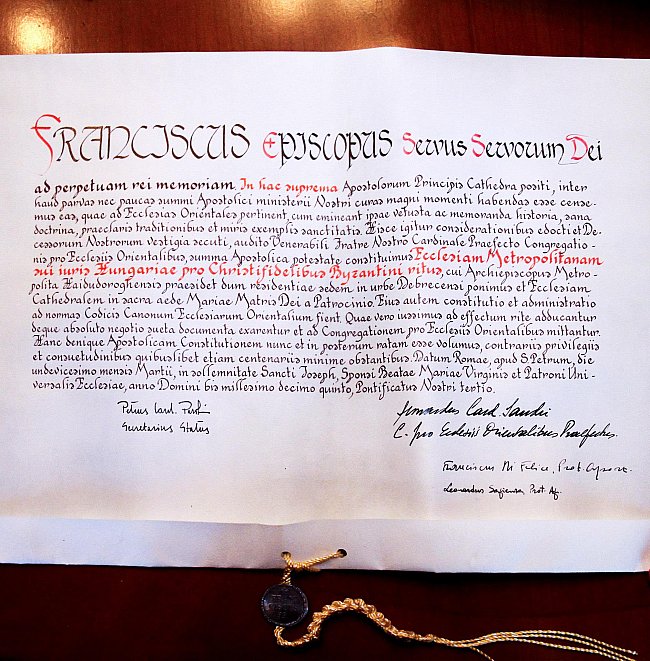 FRANCISCUS EPISCOPUS Servus Servorum Dei
ad perpetuam rei memoriam. In hac suprema Apostolorum Principis Cathedra positi, inter
haud parvas nec paucas summi Apostolici ministerii Nostri curas magni momenti habendas esse cense-
mus eas, quae ad Ecclesias Orientales pertinent, cum emineant ipsae vetusta ac memoranda historia, sana
doctrina, praeclaris traditionibus et miris exemplis sanctitatis. Hisce igitur considerationibus edocti et De-
cessorum Nostrorum vestigia secuti, audito Venerabili Fratre Nostro Cardinale Praefecto Congregatio-
nis pro Ecclesiis Orientalibus, summa Apostolica potestate constituimus Ecclesiam Metropolitanam
sui iuris Hungariae pro Christifidelibus Byzantini ritus, cui Archiepiscopus Metro-
polita Haidudoroghensis praesidet dum residentiae sedem in urbe Debrecensi ponimus et Ecclesiam
Cathedralem in sacra aede Mariae Matris Dei a Patrocinio. Eius autem constitutio et administratio
ad normas Codicis Canonum Ecclesiarum Orientalium fient. Quae vero iussimus ad effectum rite adducantur
deque absoluto negotio sueta documenta exarentur et ad Congregationem pro Ecclesiis Orientalibus mittantur.
Hanc denique Apostolicam Constitutionem nunc et in posterum ratam esse volumus, contrariis privilegiis
et consuetudinibus quibuslibet etiam centenariis minime obstantibus. Datum Romae, apud S. Petrum, die
undevicesimo mensis Martii, in sollemnitate Sancti Joseph, Sponsi Beatae Mariae Virginis et Patroni Uni-
versalis Ecclesiae, anno Domini bis millesimo decimo quinto, Pontificatus Nostri tertio.
Petrus Card.
Secretarius Status
Leonardus Card. Sandri
C. pro Ecclesiis Orientalibus Praefectus.
Franciscus Di Felice, Prot. Apost.
Leonardus Sapienza Prot. Ap.